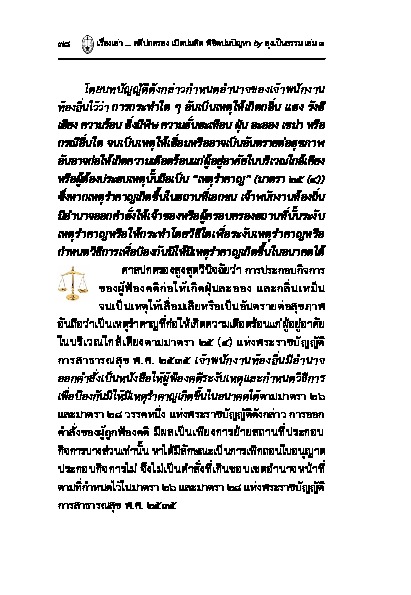 ๗๘ เรื่องเล่า ... คดีปกครอง เปิดปมคิด พิชิตปมปัญหา by ลุงเป็นธรรม เล่ม ๓
โดยบทบัญญัติดังกล่าวกำหนดอำนาจของเจ้าพนักงาน
ท้องถิ่นไว้ว่า การกระทำใด ๆ อันเป็นเหตุให้เกิดกลิ่น แสง รังสี
เสียง ความร้อน สิ่งมีพิษ ความสั่นสะเทือน ฝุ่น ละออง เขม่า หรือ
กรณีอื่นใด จนเป็นเหตุให้เสื่อมหรืออาจเป็นอันตรายต่อสุขภาพ
อันอาจก่อให้เกิดความเดือดร้อนแก่ผู้อยู่อาศัยในบริเวณใกล้เคียง
หรือผู้ต้องประสบเหตุนั้นถือเป็น “เหตุรำคาญ” (มาตรา ๒๕ (๔))
ซึ่งหากเหตุรำคาญเกิดขึ้นในสถานที่เอกชน เจ้าพนักงานท้องถิ่น
มีอำนาจออกคำสั่งให้เจ้าของหรือผู้ครอบครองสถานที่นั้นระงับ
เหตุรำคาญหรือให้กระทำโดยวิธีใดเพื่อระงับเหตุรำคาญหรือ
กำหนดวิธีการเพื่อป้องกันมิให้มีเหตุรำคาญเกิดขึ้นในอนาคตได้
ศาลปกครองสูงสุดวินิจฉัยว่า การประกอบกิจการ
ของผู้ฟ้องคดีก่อให้เกิดฝุ่นละออง และกลิ่นเหม็น
จนเป็นเหตุให้เสื่อมเสียหรือเป็นอันตรายต่อสุขภาพ
อันถือว่าเป็นเหตุรำคาญที่ก่อให้เกิดความเดือดร้อนแก่ผู้อยู่อาศัย
ในบริเวณใกล้เคียงตามมาตรา ๒๕ (๔) แห่งพระราชบัญญัติ
การสาธารณสุข พ.ศ. ๒๕๓๕ เจ้าพนักงานท้องถิ่นมีอำนาจ
ออกคำสั่งเป็นหนังสือให้ผู้ฟ้องคดีระงับเหตุและกำหนดวิธีการ
เพื่อป้องกันมิให้มีเหตุรำคาญเกิดขึ้นในอนาคตได้ตามมาตรา ๒๖
และมาตรา ๒๘ วรรคหนึ่ง แห่งพระราชบัญญัติดังกล่าว การออก
คำสั่งของผู้ถูกฟ้องคดี มีผลเป็นเพียงการย้ายสถานที่ประกอบ
กิจการบางส่วนเท่านั้น หาได้มีลักษณะเป็นการเพิกถอนใบอนุญาต
ประกอบกิจการไม่ จึงไม่เป็นคำสั่งที่เกินขอบเขตอำนาจหน้าที่
ตามที่กำหนดไว้ในมาตรา ๒๖ และมาตรา ๒๘ แห่งพระราชบัญญัติ
การสาธารณสุข พ.ศ. ๒๕๓๕